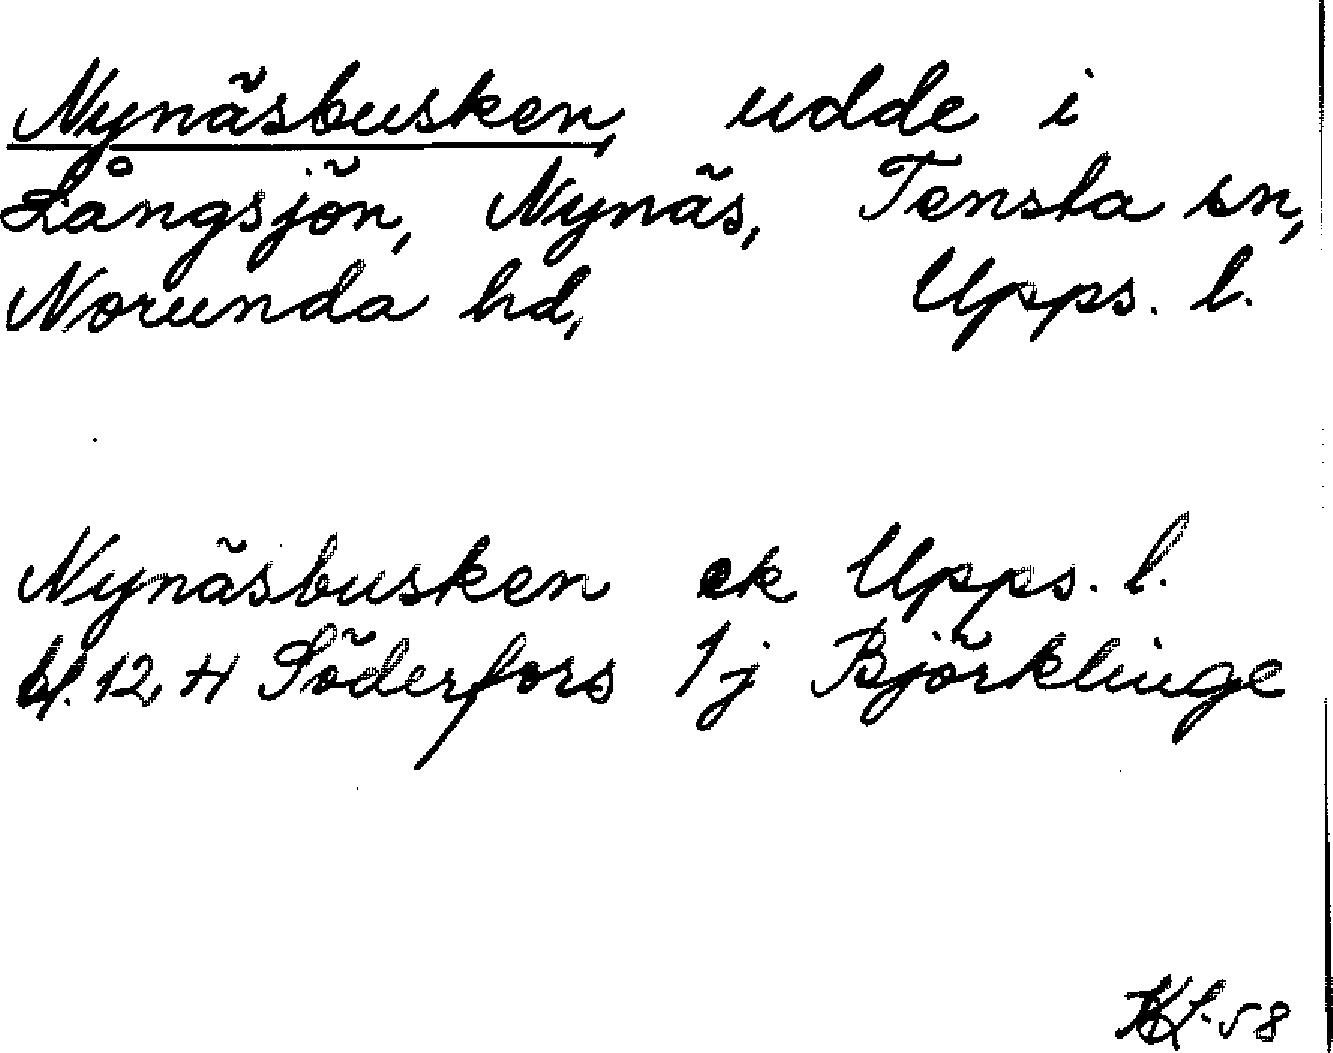 Nynäsbusken, udde i
Långsjön, Nynäs, Tensta sn,
Norunda hd, Upps. l.
Nynäsbusken ek Upps. l.
bl. 12, H Söderfors 1j Björklinge
KL-58